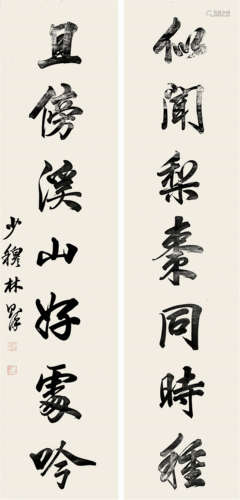 似聞梨棗同時種
且傍溪山好處吟
少穆林則徐